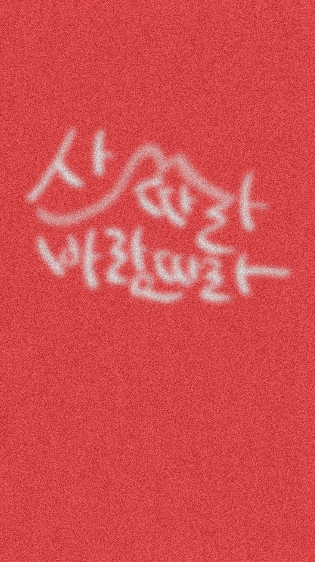 산따라
바람따라